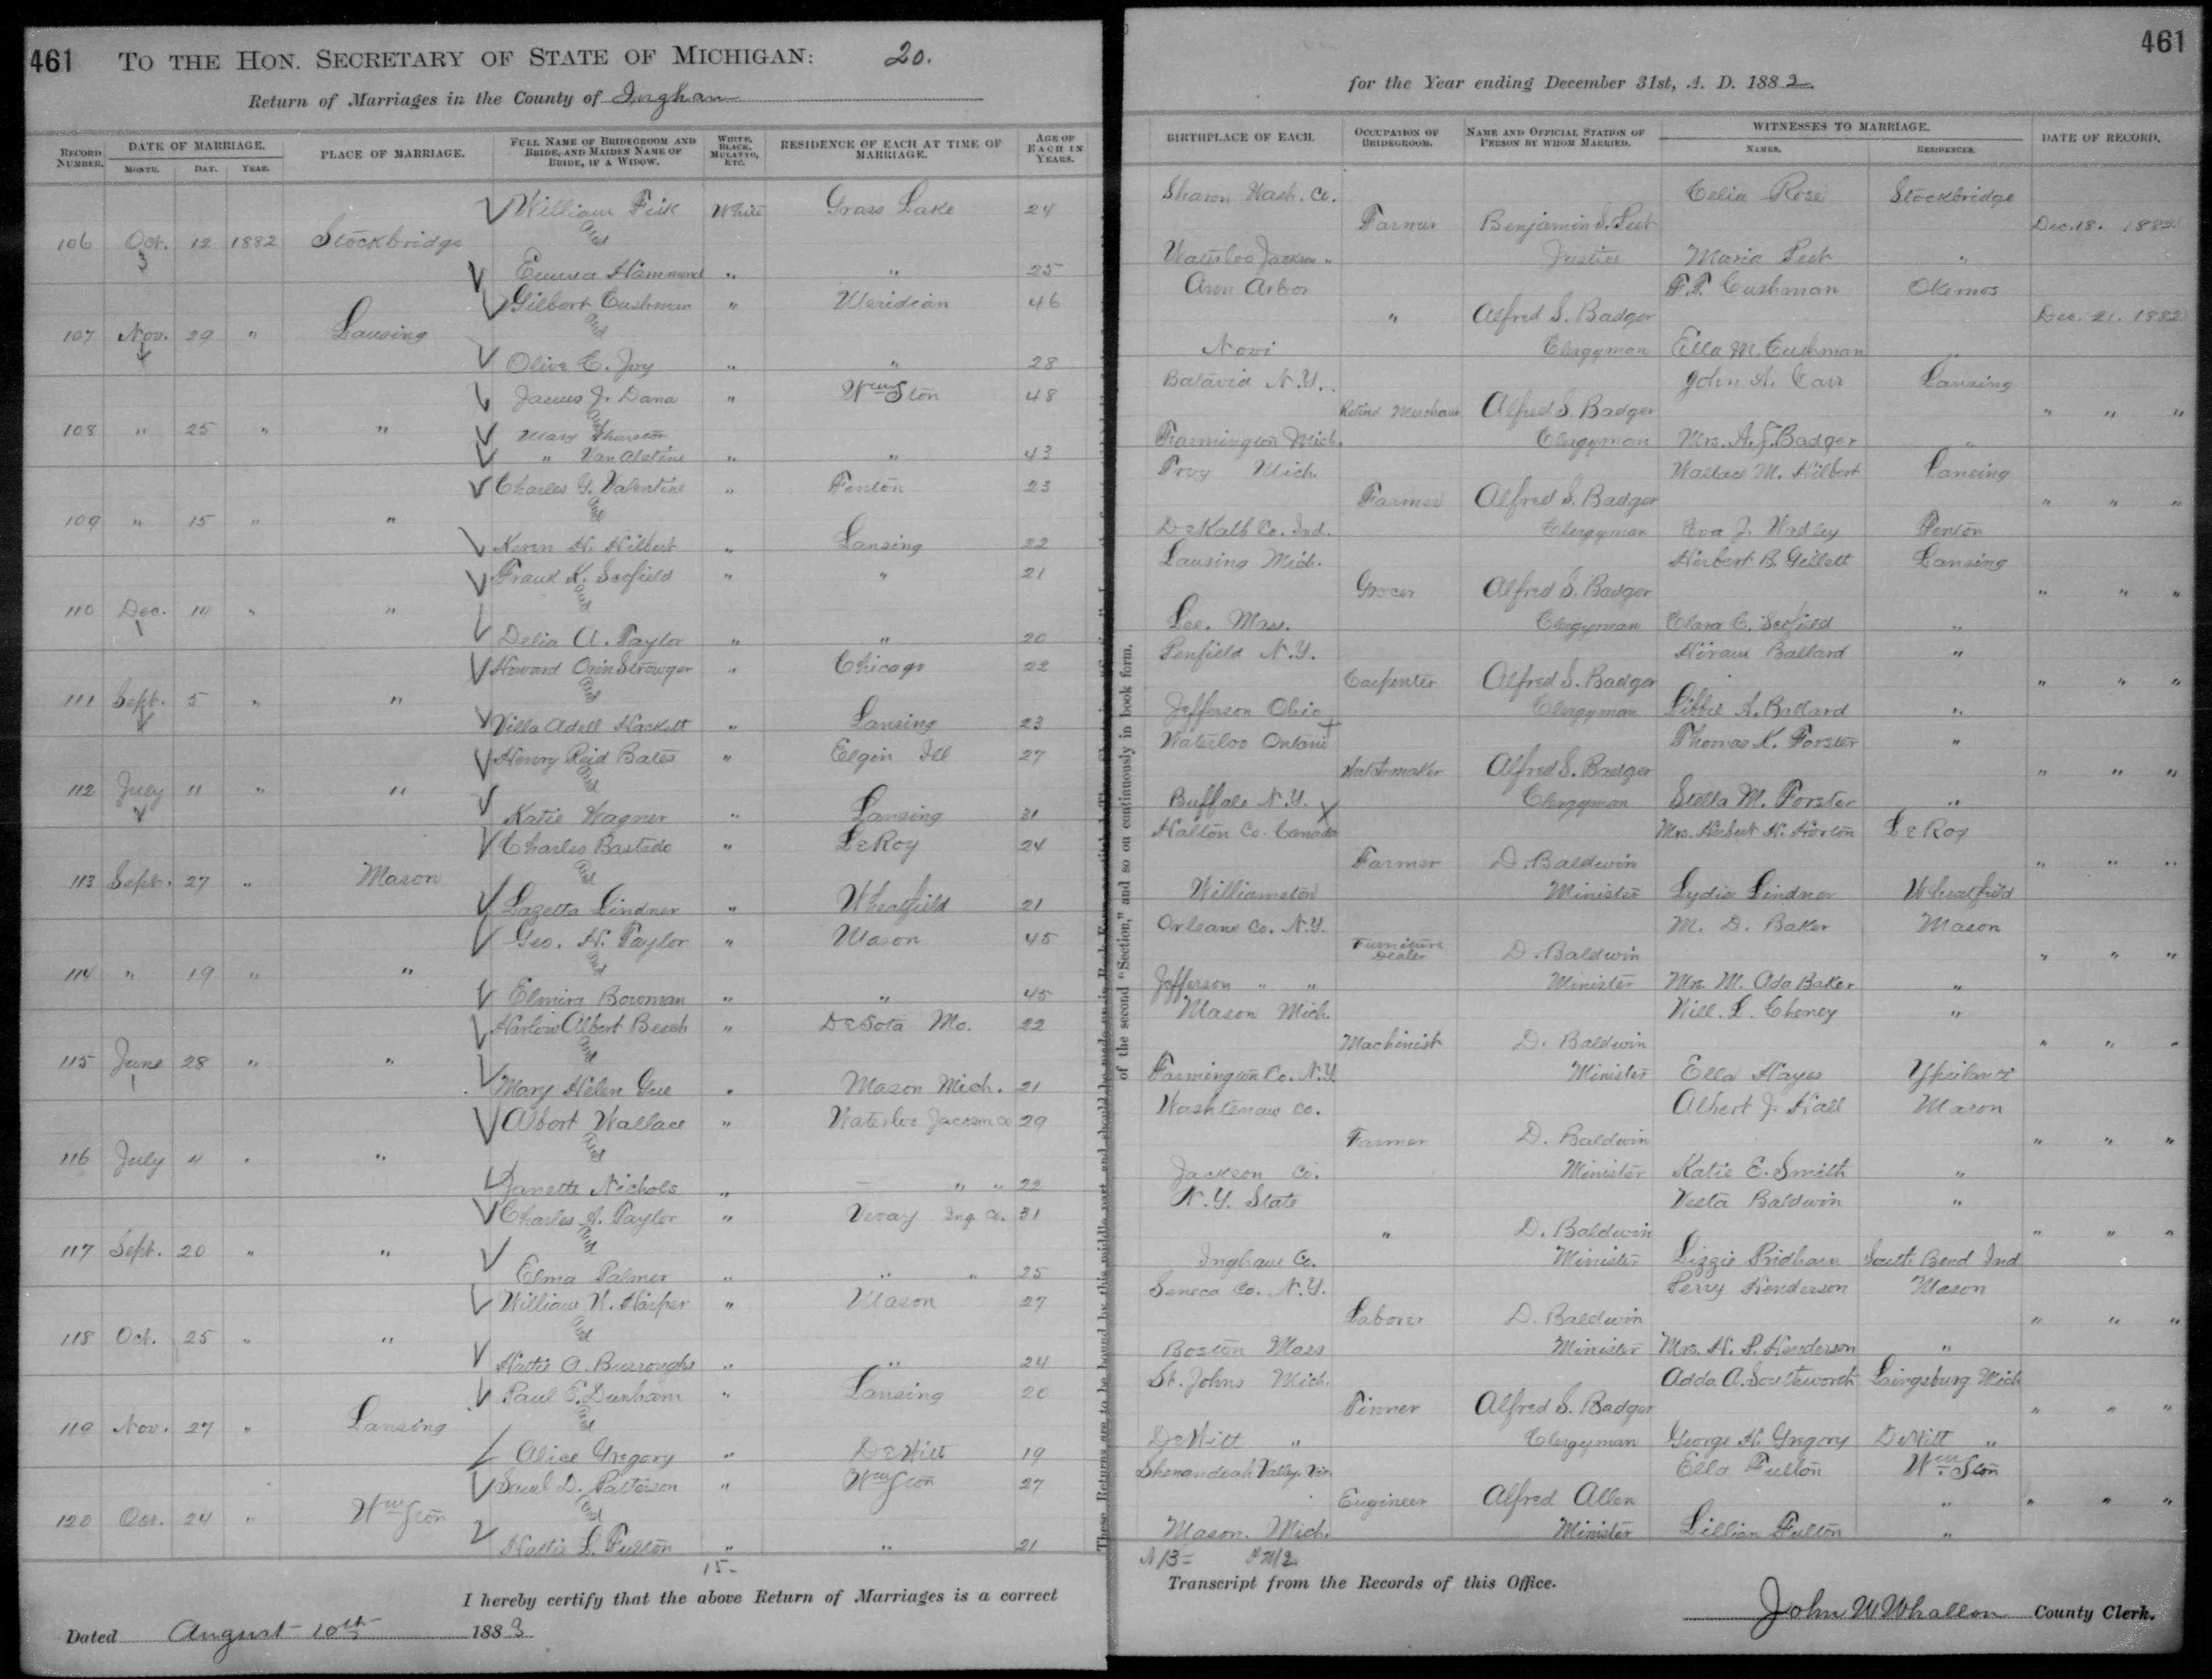 461 TO THE HON. SECRETARY OF STATE OF MICHIGAN: 20.
Return of Marriages in the County of Ingham
RECORD NUMBER. DATE OF MARRIAGE. MONTH. DAY. YEAR. PLACE OF MARRIAGE. FULL NAME OF BRIDEGROOM AND BRIDE, AND MAIDEN NAME OF BRIDE, IF A WIDOW. WHITE, BLACK, MULATTO, ETC. RESIDENCE OF EACH AT TIME OF MARRIAGE. AGE OF EACH IN YEARS.
William Fisk White Grass Lake 24
106 Oct. 12 1882 Stockbridge and
3
Emma Hammond " " 25
Gilbert Cushman " Meridian 46
107 Nov. 29 " Lansing and
Olive C. Joy " " 28
James J. Dana " Wm Ston 48
108 " 25 " " and
Mary Thurston
" Van Alstine " " 43
Charles G. Valentine " Fenton 23
109 " 15 " " and
H. Hilbert " Lansing 22
Frank K. Scofield " " 21
110 Dec. 14 " " and
1
Delia A. Taylor " " 20
Howard Orin Strowger " Chicago 22
111 Sept. 5 " " and
Villa Adell Hackett " Lansing 23
Henry Reid Bates " Elgin Ill 27
112 July 11 " " and
Katie Wagner " Lansing 31
Charles Bastedo " LeRoy 24
113 Sept. 27 " Mason and
Lazetta Lindner " Wheatfield 21
Geo. H. Taylor " Mason 45
114 " 19 " " and
Elmira Bowman " " 45
Harlow Albert Beech " DeSota Mo. 22
115 June 28 " " and
1
Mary Helen Gue " Mason Mich. 21
Albert Wallace " Waterloo Jackson Co 29
116 July 4 " " and
Janette Nichols " " " 22
Charles A. Taylor " Vevay Ing. Co. 31
117 Sept. 20 " " and
Elma Palmer " " " 25
William H. Harper " Mason 27
118 Oct. 25 " " and
Hattie A. Burroughs " " 24
Paul E. Dunham " Lansing 20
119 Nov. 27 " Lansing and
Alice Gregory " DeWitt 19
Saml D. Patterson " Wm Ston 27
120 Oct. 24 " Wm Ston and
Hattie L. Fulton " " 21
15-
I hereby certify that the above Return of Marriages is a correct
Dated August 10th 1883
of the second "Section," and so on continuously in book form.
461
for the Year ending December 31st, A. D. 1882.
BIRTHPLACE OF EACH. OCCUPATION OF BRIDEGROOM. NAME AND OFFICIAL STATION OF PERSON BY WHOM MARRIED. WITNESSES TO MARRIAGE. NAMES. RESIDENCES. DATE OF RECORD.
Sharon Wash. Co. Celia Rose Stockbridge
Farmer Benjamin S. Peet Dec. 18. 1882
Waterloo Jackson " Justice Maria Peet "
Ann Arbor F. P. Cushman Okemos
" Alfred S. Badger Dec. 21. 1882
Novi Clergyman Ella M. Cushman "
Batavia N.Y. John A. Carr Lansing
Retired Merchant Alfred S. Badger " " "
Farmington Mich. Clergyman Mrs. A. J. Badger "
Troy Mich. Wallace M. Hilbert Lansing
Farmer Alfred S. Badger " " "
DeKalb Co. Ind. Clergyman Eva J. Wadley Fenton
Lansing Mich. Herbert B. Gillett Lansing
Grocer Alfred S. Badger " " "
Lee. Mass. Clergyman Clara C. Scofield "
Penfield N.Y. Hiram Ballard "
Carpenter Alfred S. Badger " " "
Jefferson Ohio Clergyman Libbie A. Ballard "
Waterloo Ontario Thomas K. Forster "
Watchmaker Alfred S. Badger " " "
Buffalo N.Y. Clergyman Stella M. Forster "
Halton Co. Canada Mrs. Herbert H. Horton LeRoy
Farmer D. Baldwin " " "
Williamston Minister Lydia Lindner Wheatfield
Orleans Co. N.Y. M. D. Baker Mason
Furniture Dealer D. Baldwin " " "
Jefferson " " Minister Mrs. M. Oda Baker "
Mason Mich. Will. L. Cheney "
Machinist D. Baldwin " " "
Farmington Co. N.Y. Minister Ella Hayes Ypsilanti
Washtenaw Co. Albert J. Hall Mason
Farmer D. Baldwin " " "
Jackson Co. Minister Katie E. Smith "
N.Y. State Vesta Baldwin "
" D. Baldwin " " "
Ingham Co. Minister Lizzie Pridham South Bend Ind
Seneca Co. N.Y. Perry Henderson Mason
Laborer D. Baldwin " " "
Boston Mass Minister Mrs. H. P. Henderson "
St. Johns Mich. Adda A. Southworth Laingsburg Mich
Tinner Alfred S. Badger " " "
DeWitt " Clergyman George H. Gregory DeWitt "
Shenandoah Valley, Vir. Ella Fulton Wm Ston
Engineer Alfred Allen " " " "
Mason. Mich. Minister Lillian Fulton "
Transcript from the Records of this Office.
John W Whallon County Clerk.